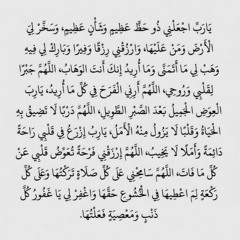 يَارَبِّ اجْعَلْنِي ذُو حَظٍّ عَظِيمٍ وَشَأْنٍ عَظِيمٍ، وَسَخِّرْ لِيَ
الْأَرْضَ وَمَنْ عَلَيْهَا، وَارْزُقْنِي رِزْقًا وَفِيرًا وَبَارِكْ لِي فِيهِ
وَهَبْ لِي مَا أَتَمَنَّى وَمَا أُرِيدُ إِنَّكَ أَنتَ الوَهَّابُ، اللَّهُمَّ جَبْرًا
لِقَلْبِي وَرُوحِي، اللَّهُمَّ أَرِنِي الْفَرَحَ فِي كُلِّ مَا أُرِيدُ، يَارَبِّ
الْعِوَضَ الْجَمِيلَ بَعْدَ الصَّبْرِ الطَّوِيلِ، اللَّهُمَّ دَرْبًا لَا تَضِيقُ بِهِ
الْحَيَاةُ وَقَلْبًا لَا يَزُولُ مِنْهُ الْأَمَلُ، يَارِبُ إِزْرَعْ فِي قَلْبِي رَاحَةً
دَائِمَةً وَأَمَلًا لَا يَخِيبُ، اللَّهُمَّ إِرْزُقْنِي فَرْحَةً تُعَوِّضُ قَلْبِي عَنْ
كُلِّ مَا فَاتَ، اللَّهُمَّ سَامِحْنِي عَلَى كُلِّ صَلَاةٍ تَرَكْتُهَا وَعَلَى كُلِّ
رَكْعَةٍ لِمَ اعْطِيهَا فِي الْخُشُوعِ حَقَّهَا وَاغْفِرْ لِي يَا غَفُورُ كُلَّ
ذَنْبٍ وَمَعْصِيَةٍ فَعَلْتُهَا.